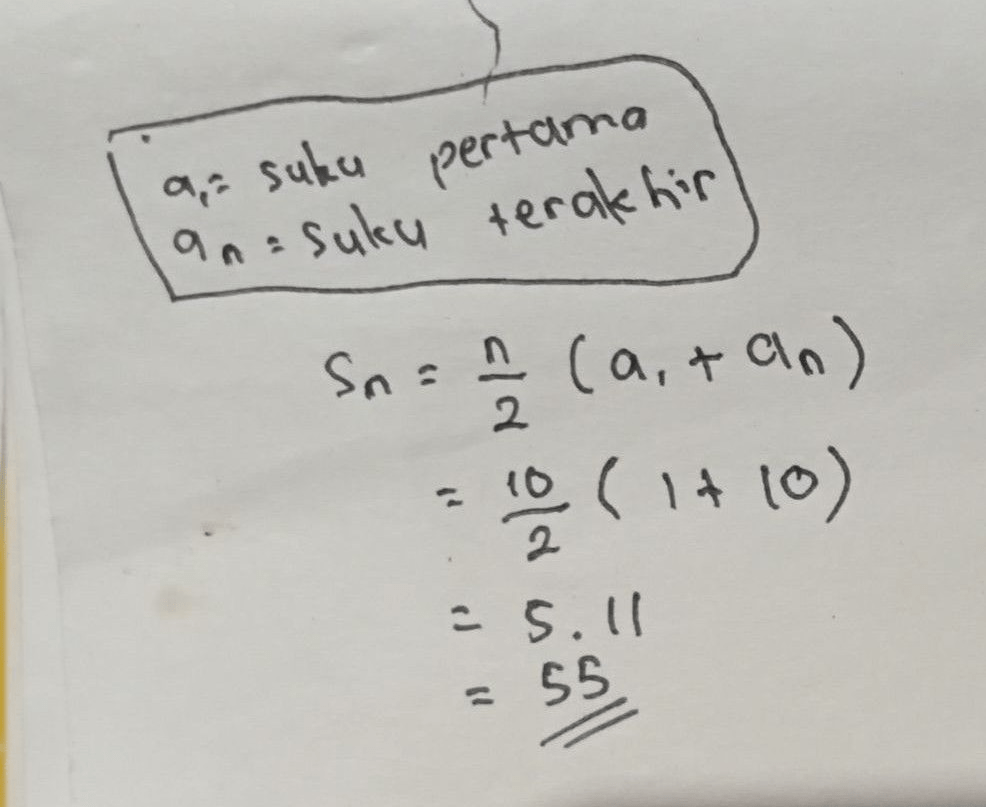 a₁= suku pertama
aₙ = suku terakhir
Sₙ = n/2 (a₁ + aₙ)
= 10/2 (1 + 10)
= 5.11
= 55